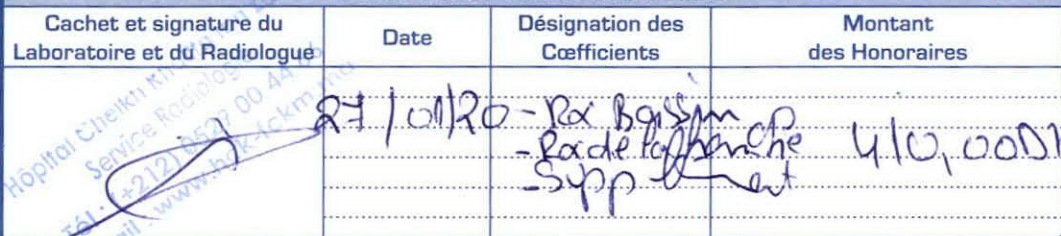 Cachet et signature du
Laboratoire et du Radiologue
Date
Désignation des
Cœfficients
Montant
des Honoraires
Hôpital Cheikh
Service Radiologie
Tél : (+212) 0529 00 44 66
www.hck-fckm.ma
27/01/20
- Rx Bassin
- Rx de la hanche
- Supplément
410,00D